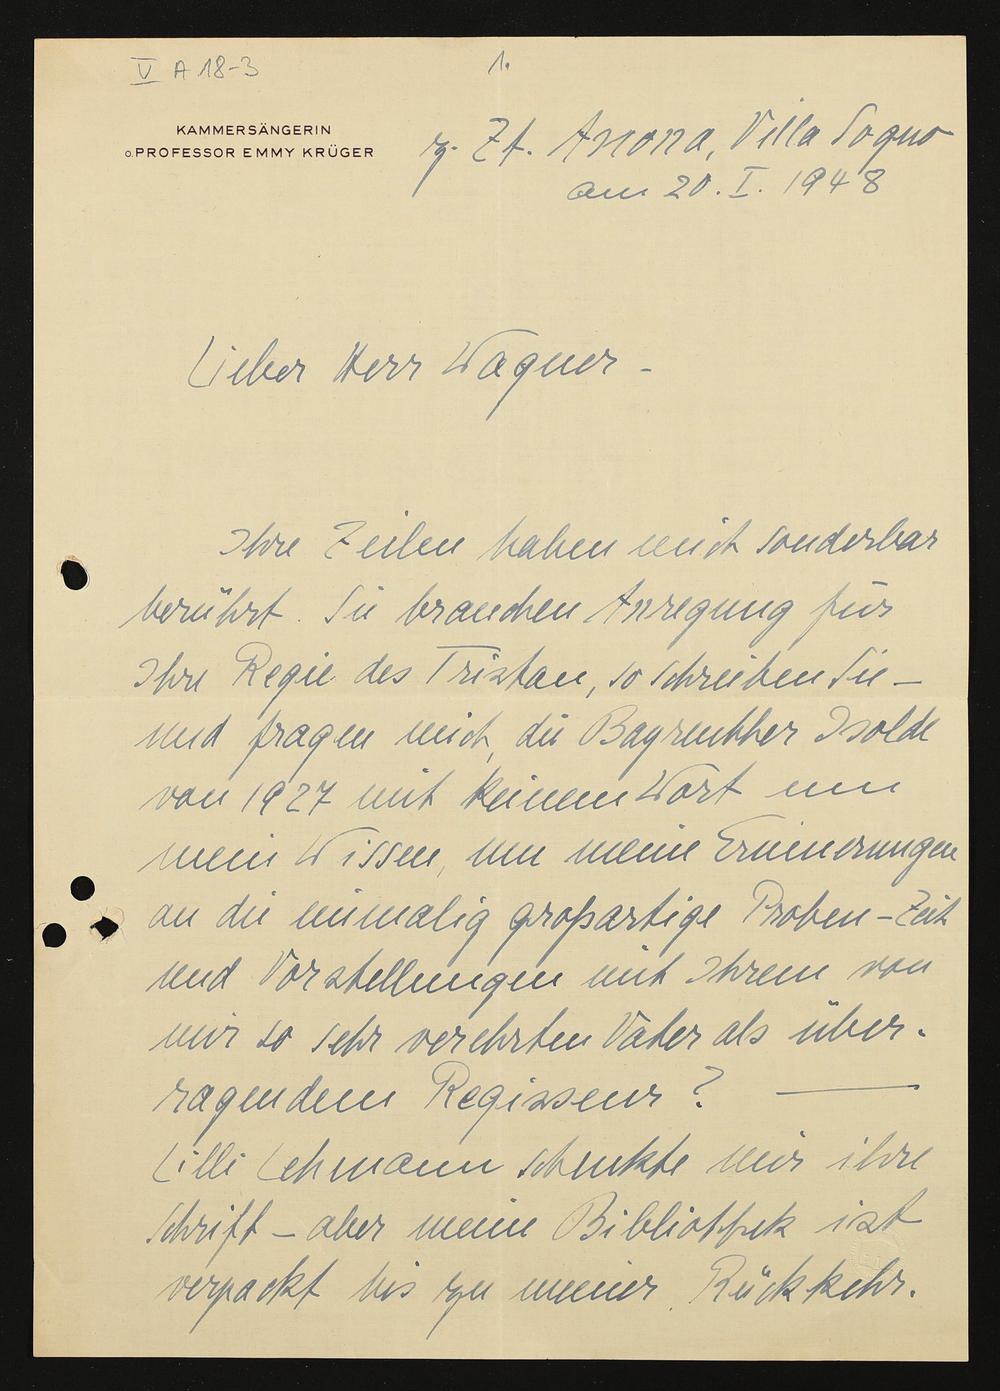 V A 18-3
1.
KAMMERSÄNGERIN
O.PROFESSOR EMMY KRÜGER
z. Zt. Ascona, Villa Sogno
am 20. I. 1948
Lieber Herr Wagner –
Ihre Zeilen haben mich sonderbar
berührt. Sie brauchen Anregung für
Ihre Regie des Tristan, so schreiben Sie –
und fragen mich, die Bayreuther Isolde
von 1927 mit keinem Wort um
mein Wissen, um meine Erinnerungen
an die einmalig großartige Proben-Zeit
und Vorstellungen mit Ihrem von
mir so sehr verehrten Vater als über-
ragendem Regisseur? —
Lilli Lehmann schenkte mir ihre
Schrift – aber meine Bibliothek ist
verpackt bis zu meiner Rückkehr.